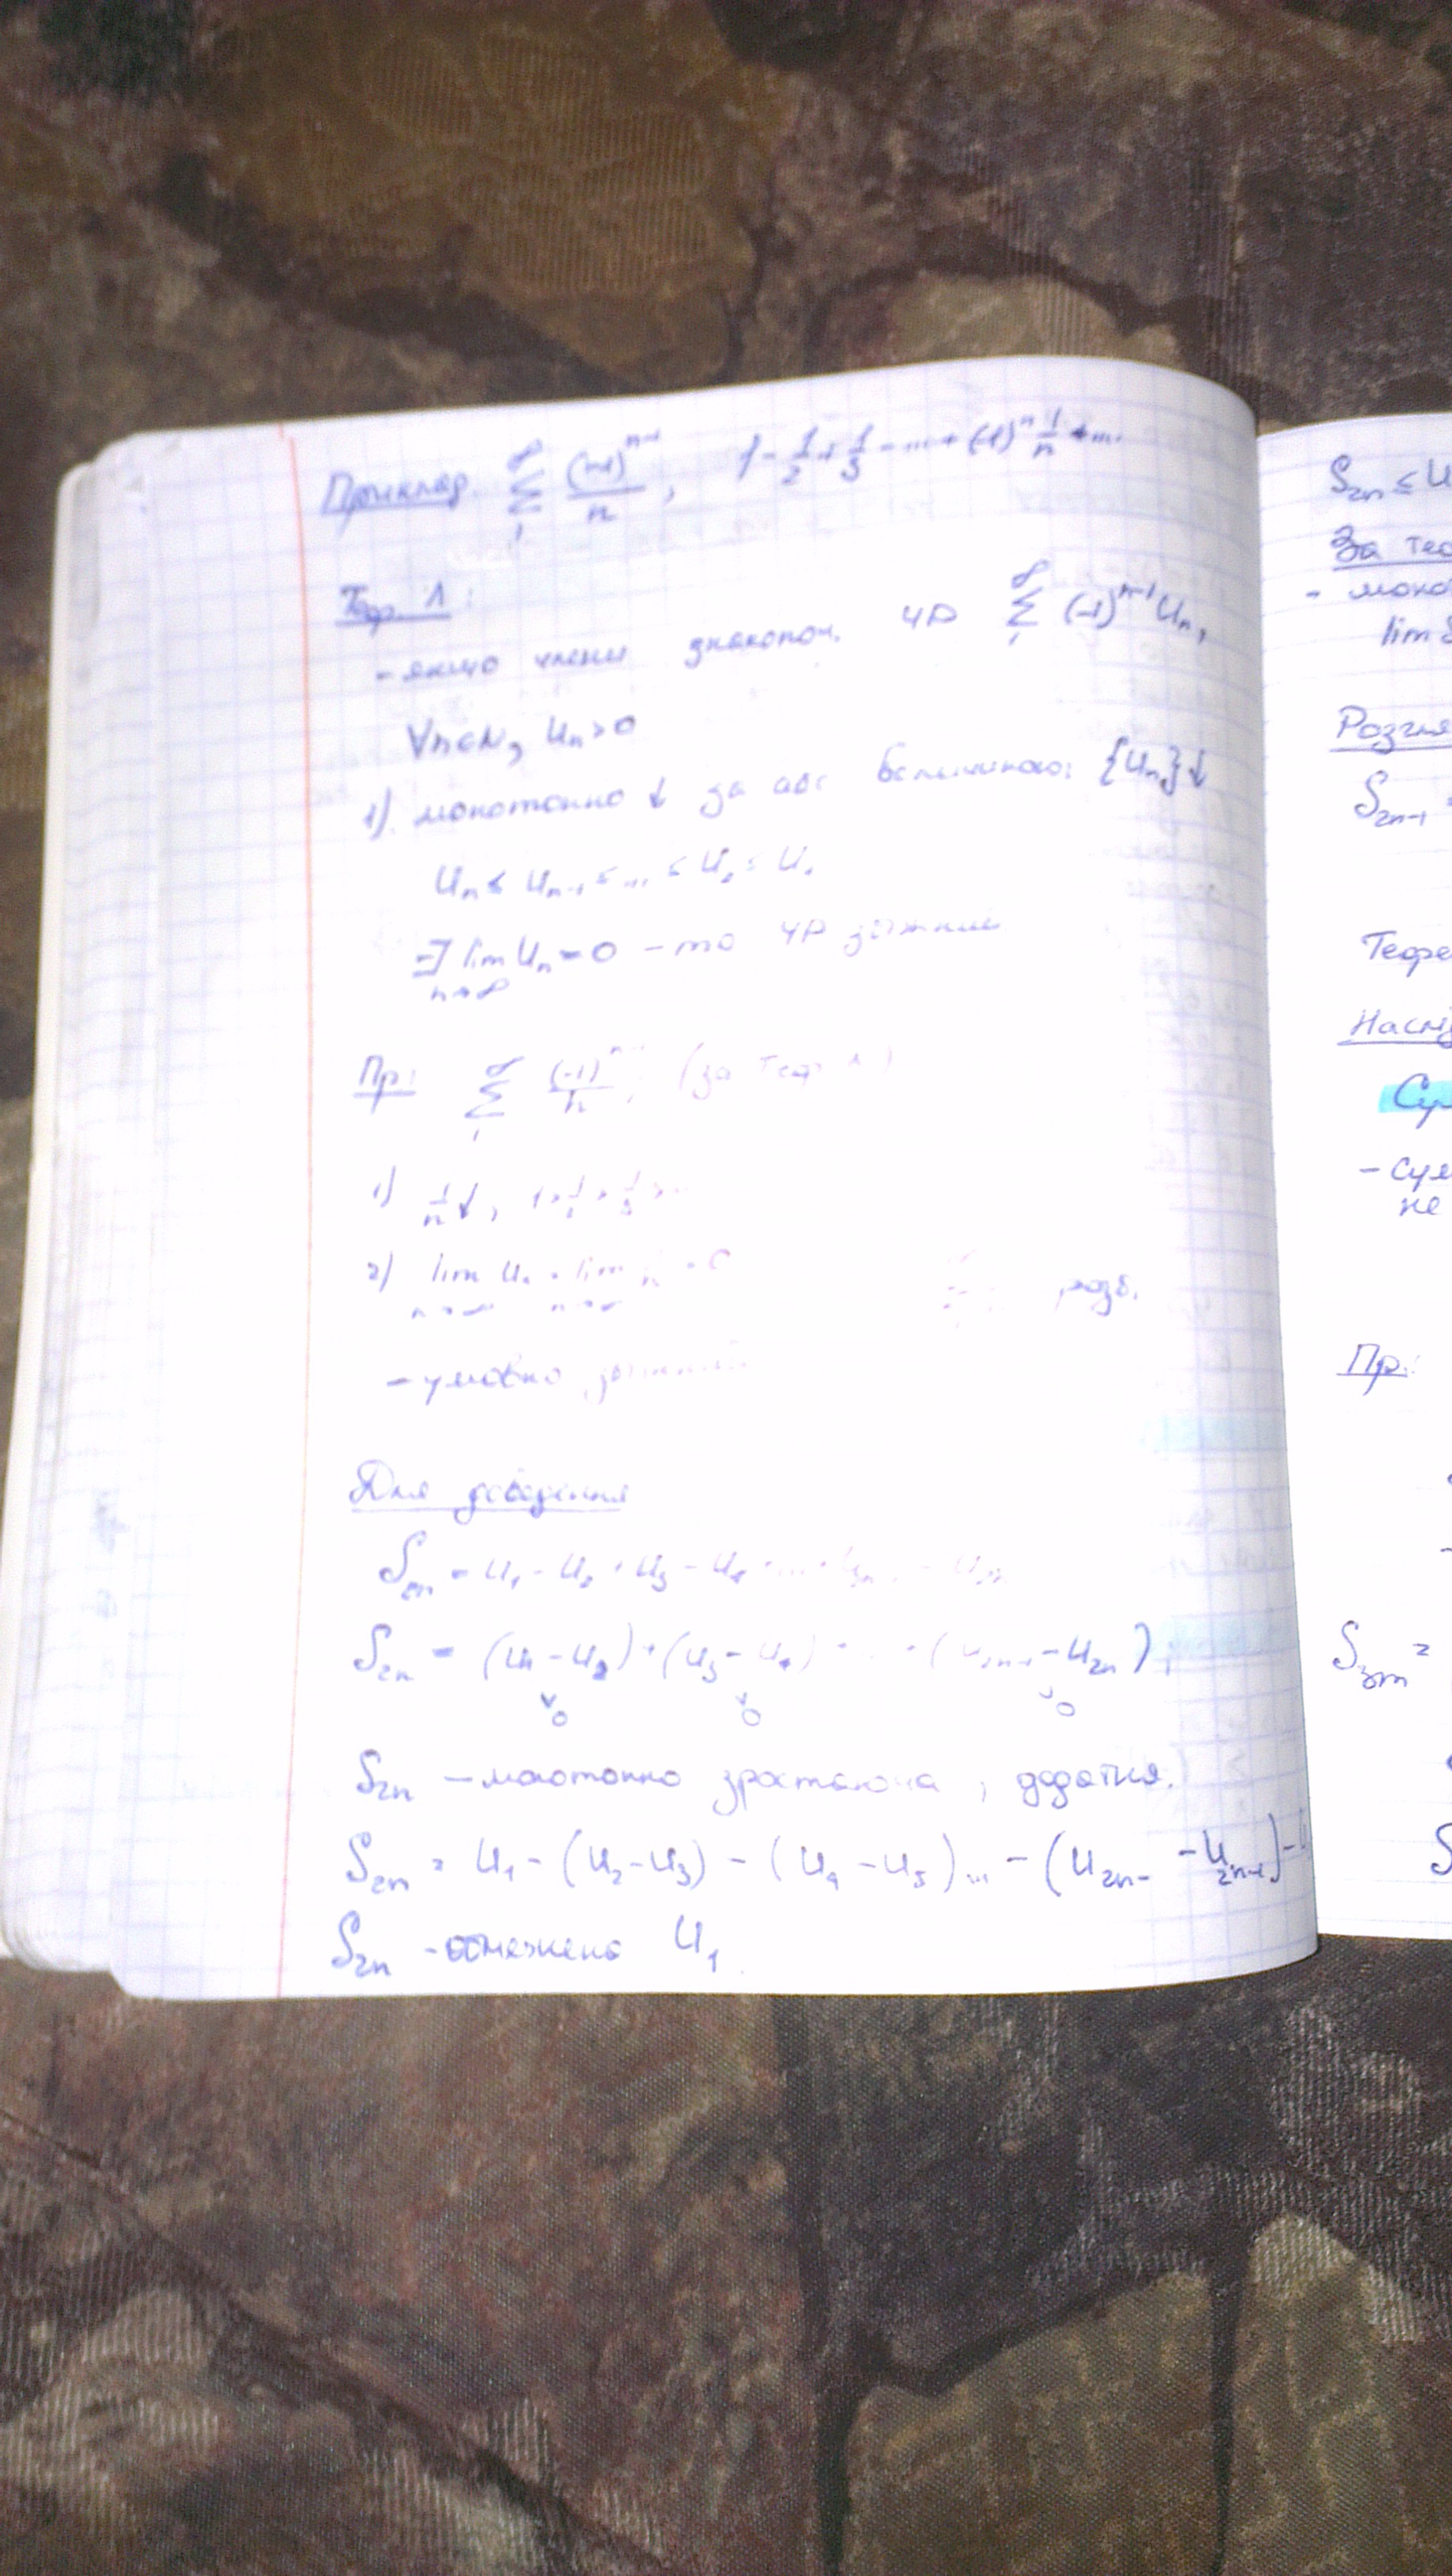 Приклад. ∞ Σ 1 (-1)^{n-1}/n, 1 - 1/2 + 1/3 - ... + (-1)^n 1/n + ...
Теор. Л:
- якщо члени знакопоч. ЧР ∞ Σ 1 (-1)^{n-1} U_n,
∀n∈N, U_n > 0
1) монотонно ↓ за абс величиною: {U_n}↓
U_n ≤ U_{n-1} ≤ ... ≤ U_2 ≤ U_1
∃ lim n→∞ U_n = 0 - то ЧР збіжний
Пр: ∞ Σ 1 (-1)^{n-1}/n, (за теор Л)
1) 1/n ↓, 1 > 1/2 > 1/3 > ...
2) lim n→∞ U_n = lim n→∞ 1/n = 0
розб.
- умовно збіжний
Для доведення
S_{2n} = U_1 - U_2 + U_3 - U_4 + ... + U_{2n-1} - U_{2n}
S_{2n} = (U_1 - U_2) + (U_3 - U_4) + ... + (U_{2n-1} - U_{2n}),
∨0 ∨0 ∨0
S_{2n} - монотонно зростаюча, додатня.
S_{2n} = U_1 - (U_2 - U_3) - (U_4 - U_5) ... - (U_{2n-} - U_{2n-1}) -
S_{2n} - обмежена U_1
S_{2n} ≤ U
За тео
- моно
lim S
Розгля
S_{2n-1} =
Теоре
Наслі
Сум
- Сум
не
Пр:
S_{3m} =
S